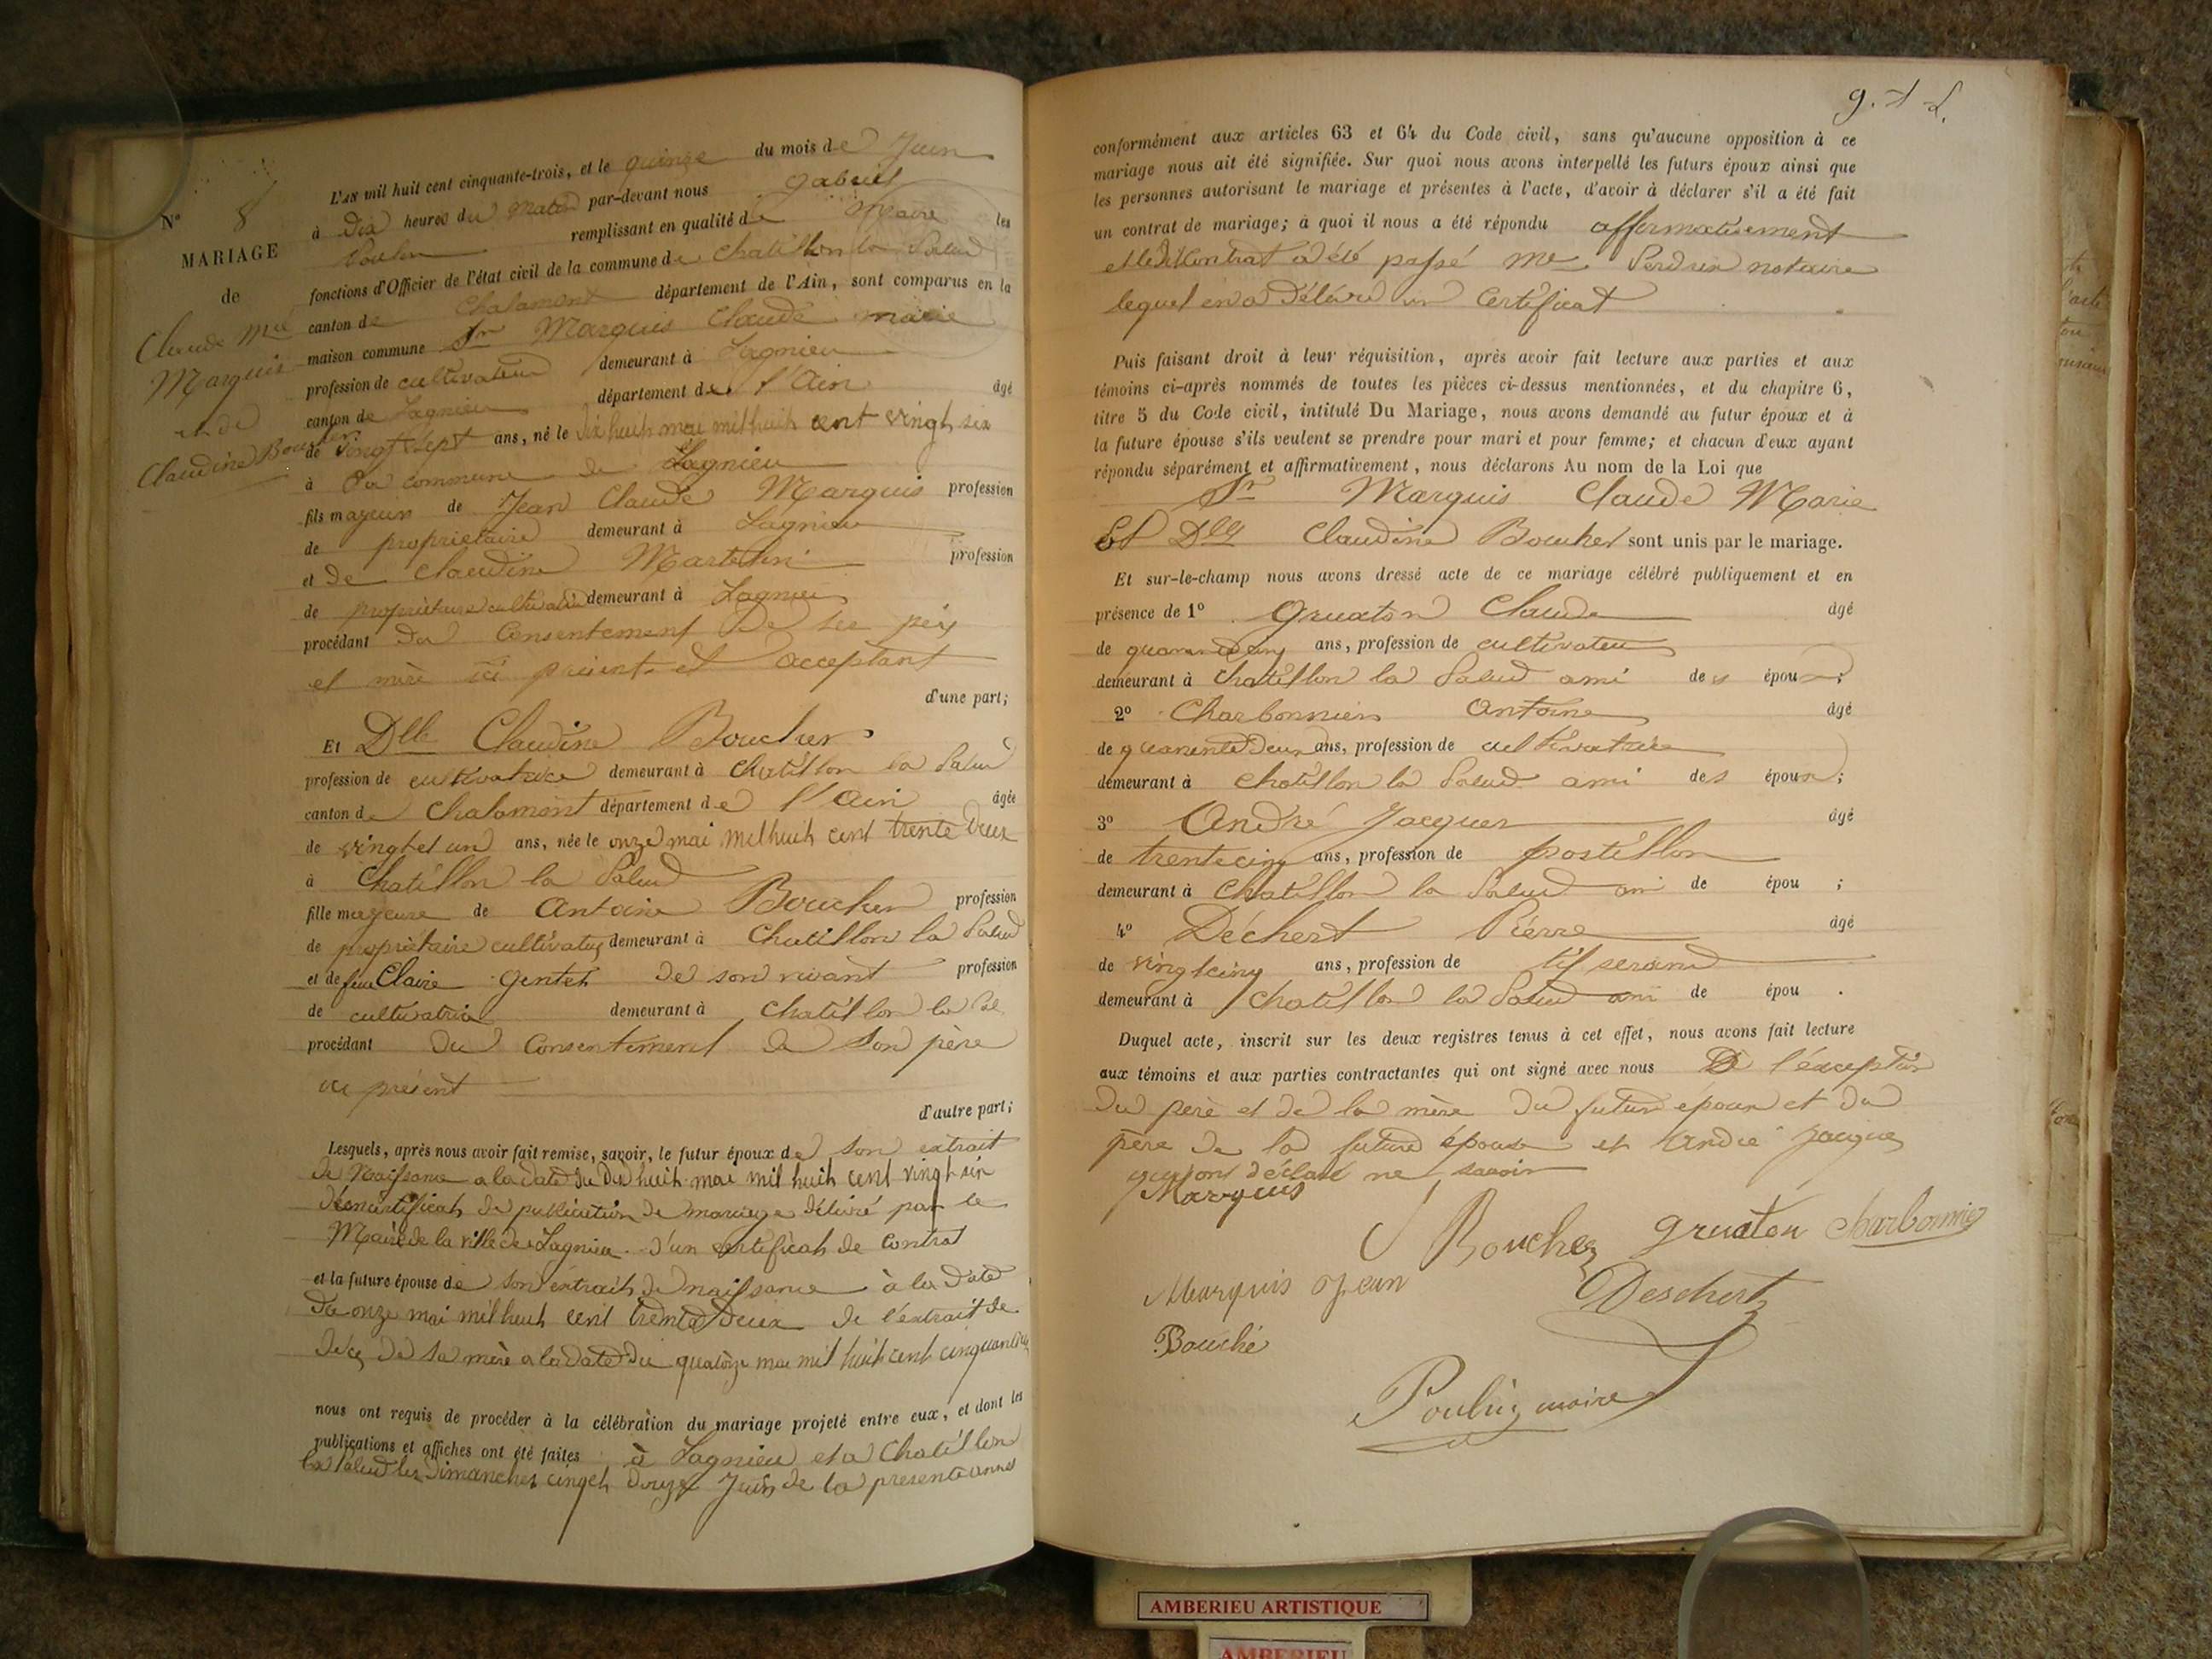 N° 8
MARIAGE
de
Claude Mie
Marquis
et de
Claudine Boucher
L'an mil huit cent cinquante-trois, et le quinze du mois de Juin
à Dix heures du Matin par-devant nous gabriel
Poulin remplissant en qualité de Maire les
fonctions d'Officier de l'état civil de la commune de chatillon la Palud
canton de Chalamont département de l'Ain, sont comparus en la
maison commune Sr Marquis Claude marie
profession de cultivateur demeurant à Lagnieu
canton de Lagnieu département de l'Ain âgé
de vingt sept ans, né le dix huit mai mil huit cent vingt six
à la commune de Lagnieu
fils majeur de Jean Claude Marquis profession
de propriétaire demeurant à Lagnieu
et de Claudine profession
de demeurant à Lagnieu
procédant du Consentement de ses père
et mère ici présents et acceptant
d'une part;
Et Dlle Claudine Boucher
profession de cultivatrice demeurant à Chatillon la Palud
canton de Chalamont département de l'Ain âgée
de vingt et un ans, née le onze mai mil huit cent trente deux
à Chatillon la Palud
fille majeure de Antoine Boucher profession
de propriétaire cultivateur demeurant à Chatillon la Palud
et de feue Claire gentet de son vivant profession
de cultivatrice demeurant à Chatillon la Pal
procédant du Consentement de Son père
ici présent
d'autre part;
Lesquels, après nous avoir fait remise, savoir, le futur époux de son extrait
de Naissance a la date du dix huit mai mil huit cent vingt six
certificat de publication de mariage délivré par le
Maire de la ville de Lagnieu. d'un certificat de contrat
et la future épouse de son extrait de naissance à la date
du onze mai mil huit cent trente deux de l'extrait de
décès de sa mère a la date du quatorze mai mil huit cent
nous ont requis de procéder à la célébration du mariage projeté entre eux, et dont les
publications et affiches ont été faites à Lagnieu et a Chatillon
la Palud les Dimanches cinq et douze Juin de la presente année
conformément aux articles 63 et 64 du Code civil, sans qu'aucune opposition à ce
mariage nous ait été signifiée. Sur quoi nous avons interpellé les futurs époux ainsi que
les personnes autorisant le mariage et présentes à l'acte, d'avoir à déclarer s'il a été fait
un contrat de mariage; à quoi il nous a été répondu affirmativement
et ledit Contrat a été passé Me notaire
lequel en a délivré un Certificat
Puis faisant droit à leur réquisition, après avoir fait lecture aux parties et aux
témoins ci-après nommés de toutes les pièces ci-dessus mentionnées, et du chapitre 6,
titre 5 du Code civil, intitulé Du Mariage, nous avons demandé au futur époux et à
la future épouse s'ils veulent se prendre pour mari et pour femme; et chacun d'eux ayant
répondu séparément et affirmativement, nous déclarons Au nom de la Loi que
Sr Marquis Claude Marie
Et Dlle Claudine Boucher sont unis par le mariage.
Et sur-le-champ nous avons dressé acte de ce mariage célébré publiquement et en
présence de 1° Gruaton Claude âgé
de ans, profession de cultivateur
demeurant à Chatillon la Palud ami des époux;
2° Charbonnier Antoine âgé
de quarente deux ans, profession de
demeurant à Chatillon la Palud ami des époux;
3° André Jacques âgé
de trente cinq ans, profession de postillon
demeurant à Chatillon la Palud ami de épou ;
4° Déchert Pierre âgé
de vingt cinq ans, profession de tisserand
demeurant à Chatillon la Palud ami de épou .
Duquel acte, inscrit sur les deux registres tenus à cet effet, nous avons fait lecture
aux témoins et aux parties contractantes qui ont signé avec nous De l'exception
du père et de la mère du futur époux et du
père de la future épouse et André Jacques
qui ont déclaré ne savoir
Marquis
Boucher gruaton charbonnier
Marquis jean Deschert
Bouché
Poulin maire
AMBERIEU ARTISTIQUE
AMBERIEU